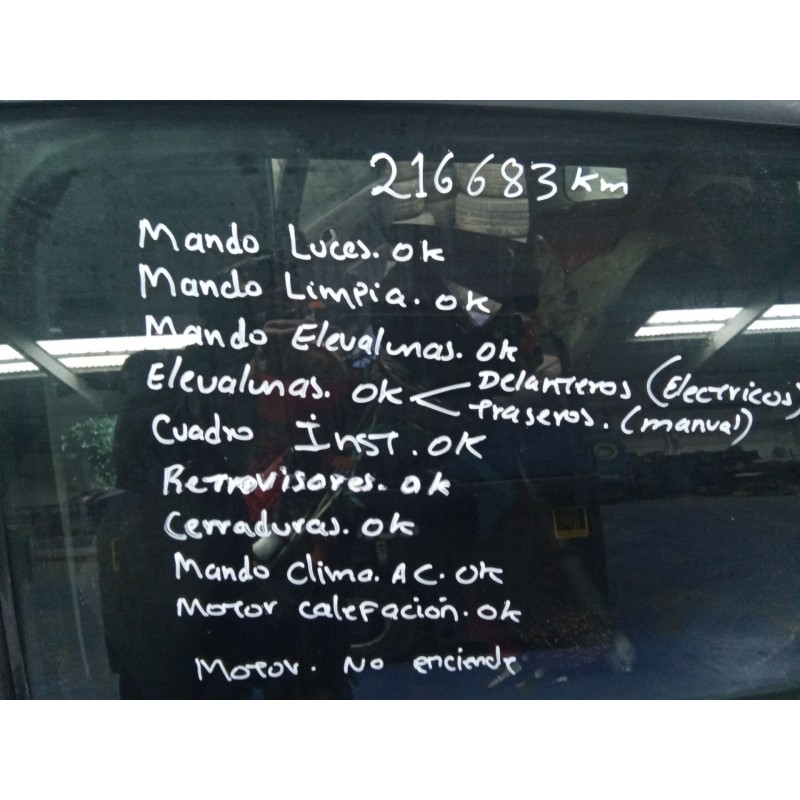 216683 km
Mando Luces. ok
Mando Limpia. ok
Mando Elevalunas. ok
Elevalunas. ok < Delanteros (Electricos)
traseros. (manual)
Cuadro Inst. OK
Retrovisores. ok
Cerraduras. ok
Mando clima. AC. Ok
Motor calefacion. ok
Motor. No enciende